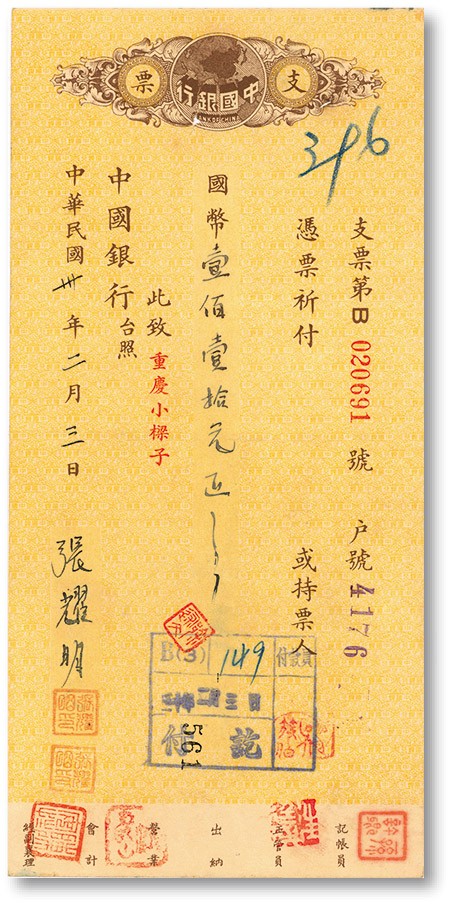 支票
中國銀行
BANK OF CHINA
396
支票第B 020691 號 戶號 4176
憑票祈付 或持票人
國幣 壹佰壹拾元正
此致 重慶小樑子
中國銀行 台照
中華民國卅年二月三日
張耀明
B(3) 149
付款員
付訖
561
記帳員
出納
營業
會計
經副襄理